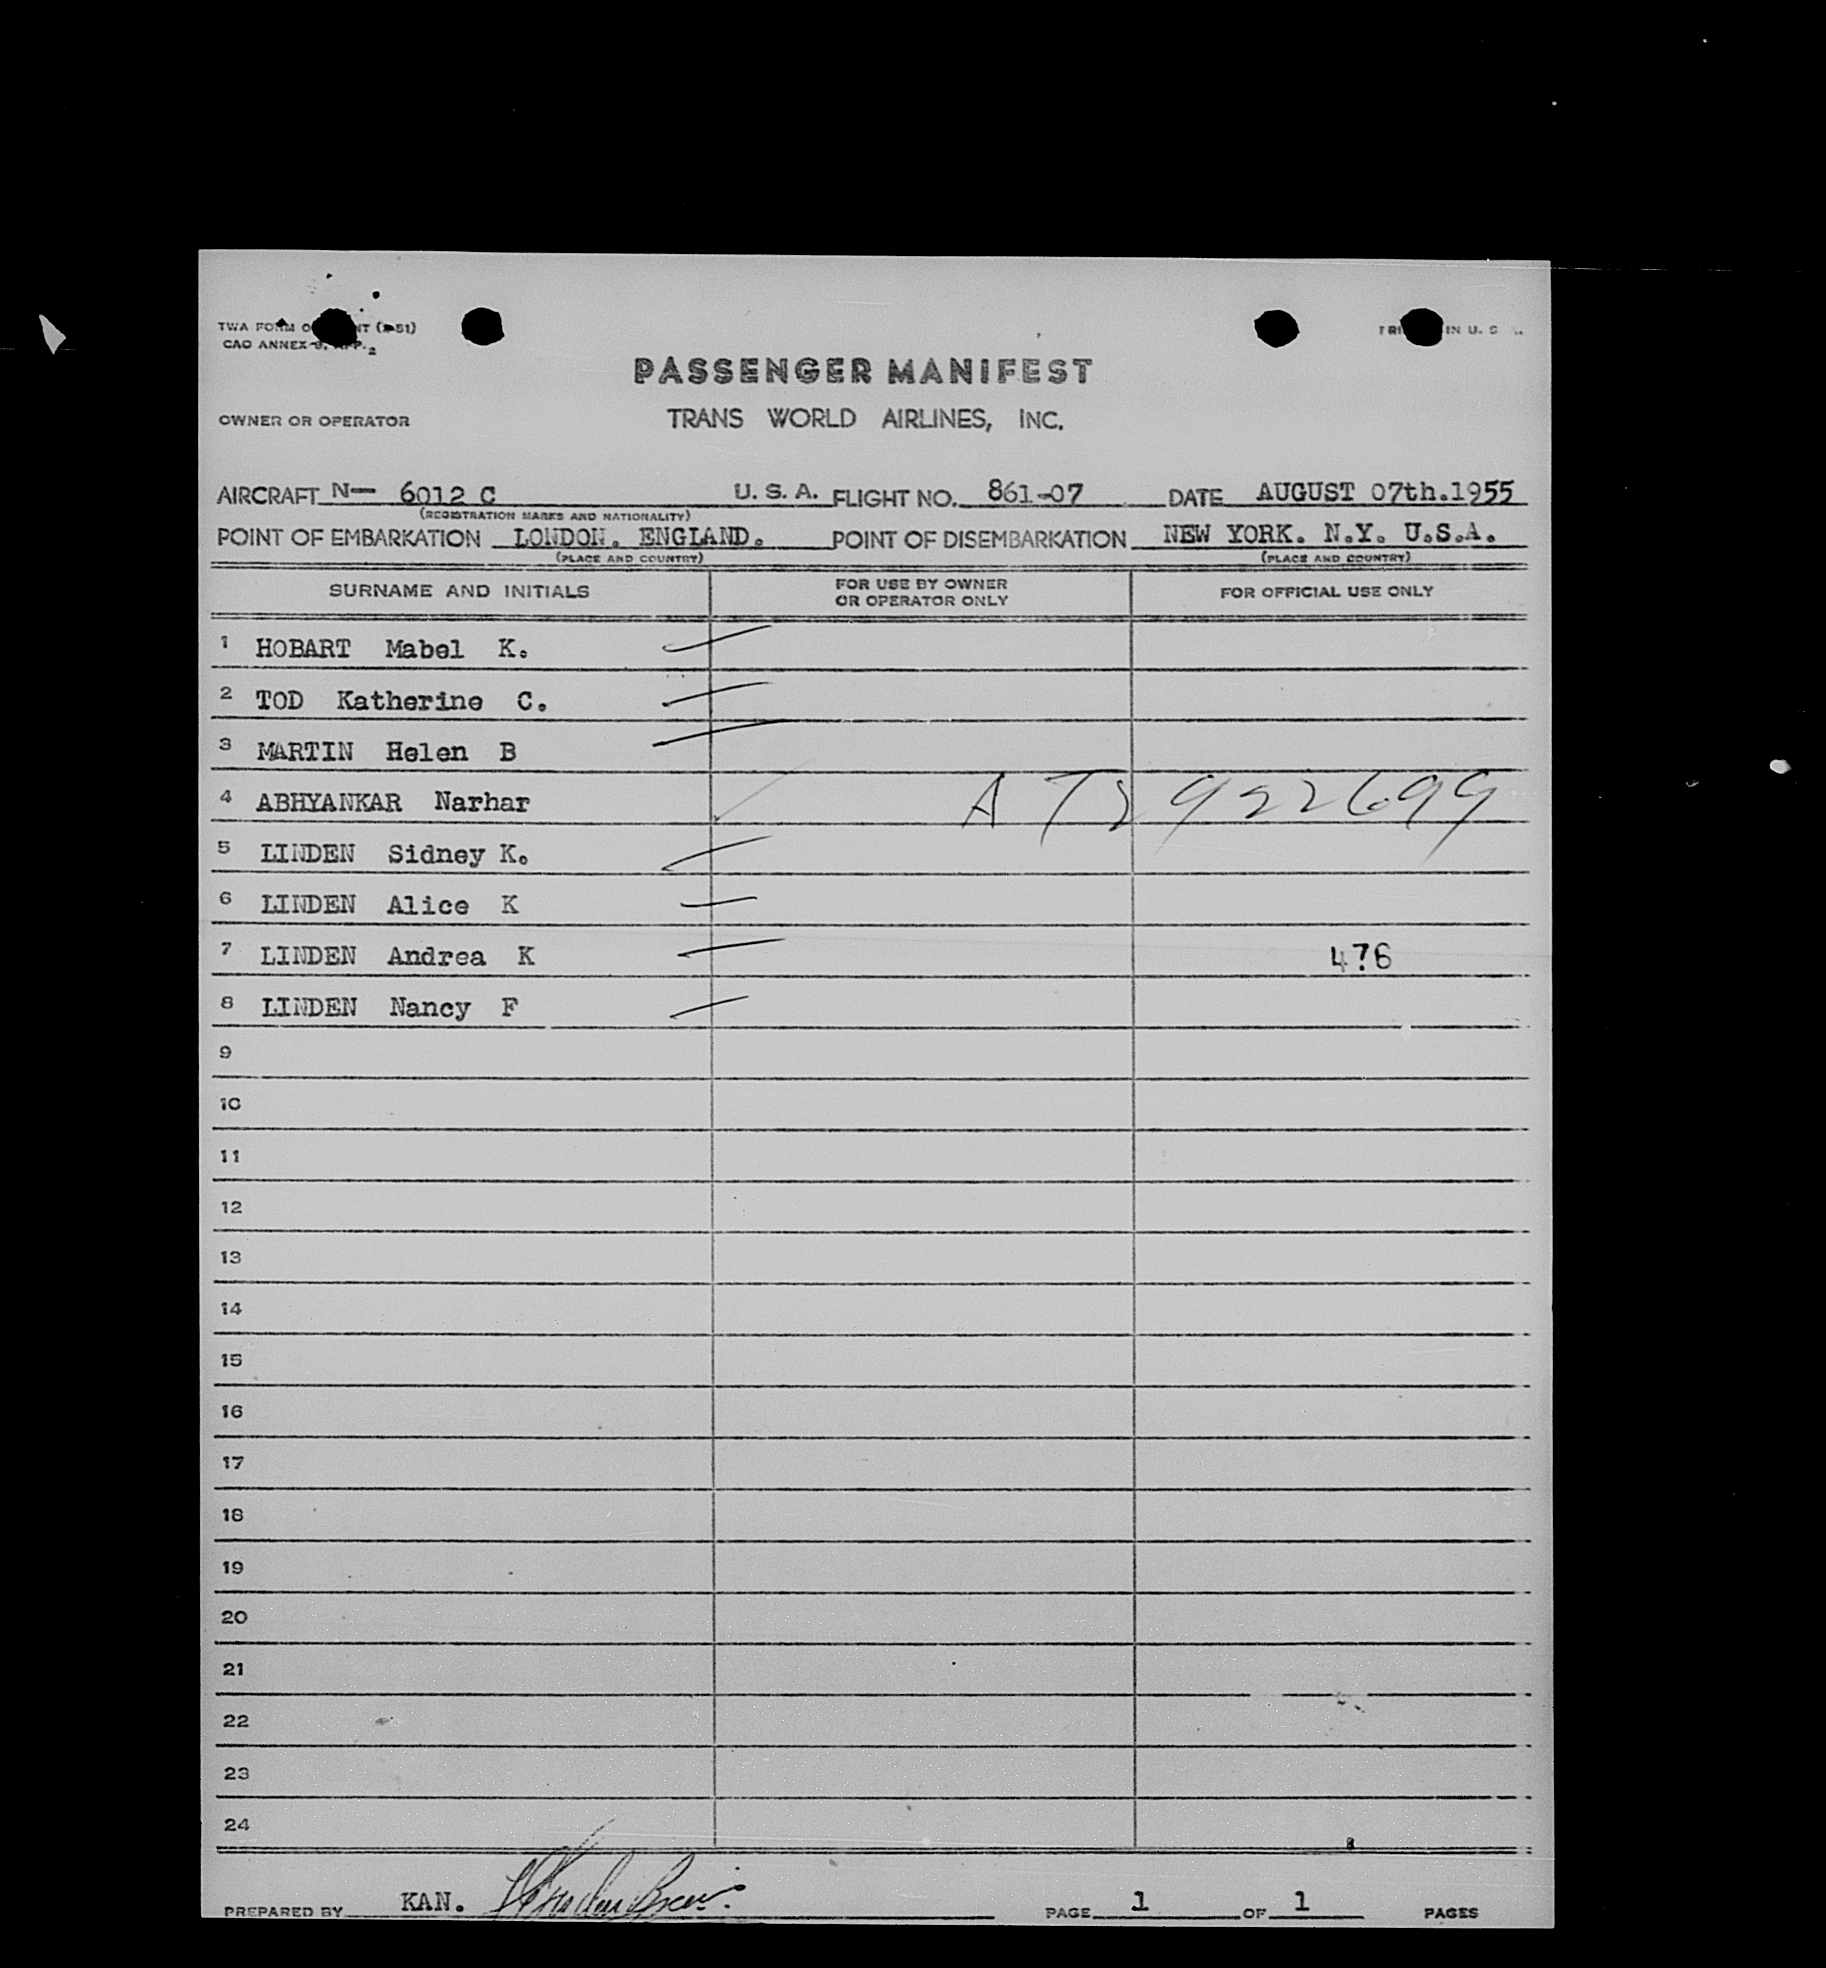 TWA FORM
CAO ANNEX 9, APP. 2
IN U. S.
PASSENGER MANIFEST
OWNER OR OPERATOR TRANS WORLD AIRLINES, INC.
AIRCRAFT N— 6012 C U. S. A. FLIGHT NO. 861-07 DATE AUGUST 07th.1955
(REGISTRATION MARKS AND NATIONALITY)
POINT OF EMBARKATION LONDON. ENGLAND. POINT OF DISEMBARKATION NEW YORK. N.Y. U.S.A.
(PLACE AND COUNTRY) (PLACE AND COUNTRY)
SURNAME AND INITIALS FOR USE BY OWNER OR OPERATOR ONLY FOR OFFICIAL USE ONLY
1 HOBART Mabel K.
2 TOD Katherine C.
3 MARTIN Helen B
4 ABHYANKAR Narhar
5 LINDEN Sidney K.
6 LINDEN Alice K
7 LINDEN Andrea K 476
8 LINDEN Nancy F
9
10
11
12
13
14
15
16
17
18
19
20
21
22
23
24
PREPARED BY KAN. PAGE 1 OF 1 PAGES